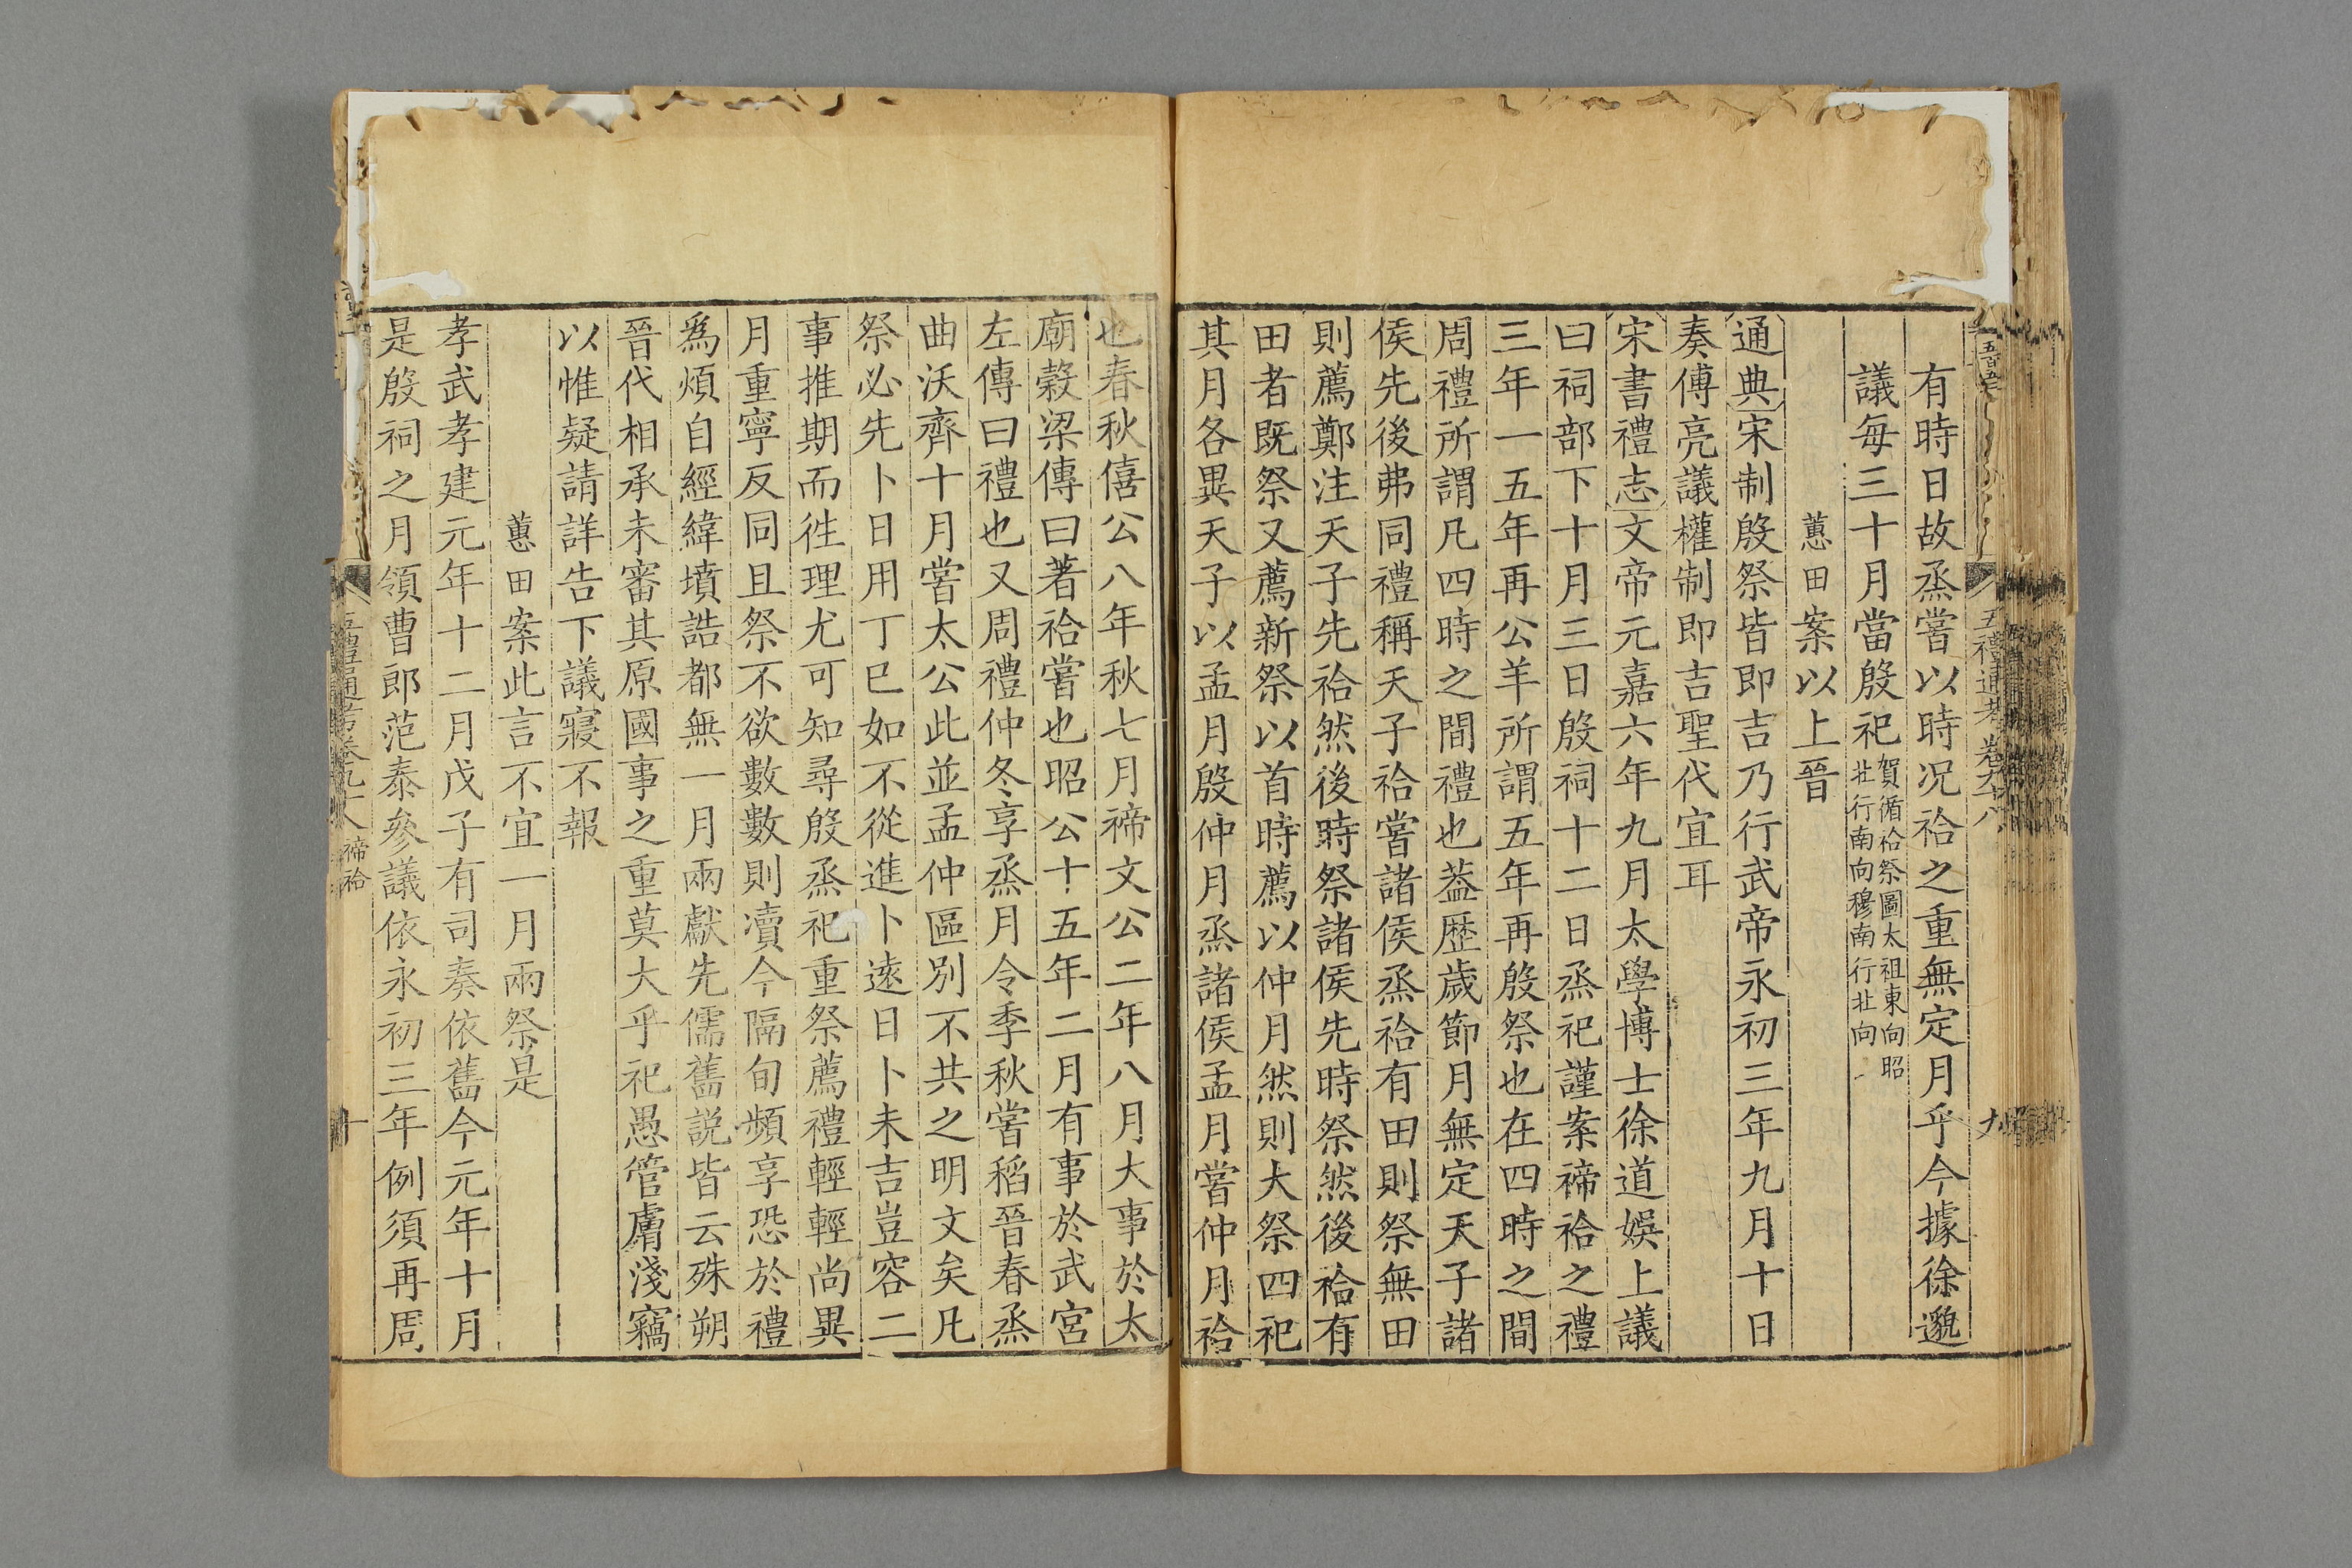 五禮通考 卷九十八
九
有時日故烝嘗以時況祫之重無定月乎今據徐邈
議每三十月當殷祀賀循祫祭圖太祖東向昭北行南向穆南行北向
蕙田案以上晉
通典宋制殷祭皆即吉乃行武帝永初三年九月十日
奏傅亮議權制即吉聖代宜耳
宋書禮志文帝元嘉六年九月太學博士徐道娛上議
曰祠部下十月三日殷祠十二日烝祀謹案禘祫之禮
三年一五年再公羊所謂五年再殷祭也在四時之間
周禮所謂凡四時之間禮也蓋歷歲節月無定天子諸
侯先後弗同禮稱天子祫嘗諸侯烝祫有田則祭無田
則薦鄭注天子先祫然後時祭諸侯先時祭然後祫有
田者既祭又薦新祭以首時薦以仲月然則大祭四祀
其月各異天子以孟月殷仲月烝諸侯孟月嘗仲月祫
也春秋僖公八年秋七月禘文公二年八月大事於太
廟穀梁傳曰著祫嘗也昭公十五年二月有事於武宮
左傳曰禮也又周禮仲冬享烝月令季秋嘗稻晉春烝
曲沃齊十月嘗太公此並孟仲區別不共之明文矣凡
祭必先卜日用丁巳如不從進卜遠日卜未吉豈容二
事推期而徃理尤可知尋殷烝祀重祭薦禮輕輕尚異
月重寧反同且祭不欲數數則瀆今隔旬頻享恐於禮
爲煩自經緯墳誥都無一月兩獻先儒舊説皆云殊朔
晉代相承未審其原國事之重莫大乎祀愚管膚淺竊
以惟疑請詳告下議寢不報
蕙田案此言不宜一月兩祭是
孝武孝建元年十二月戊子有司奏依舊今元年十月
是殷祠之月領曹郎范泰參議依永初三年例須再周
五禮通考卷九十八 禘祫
十